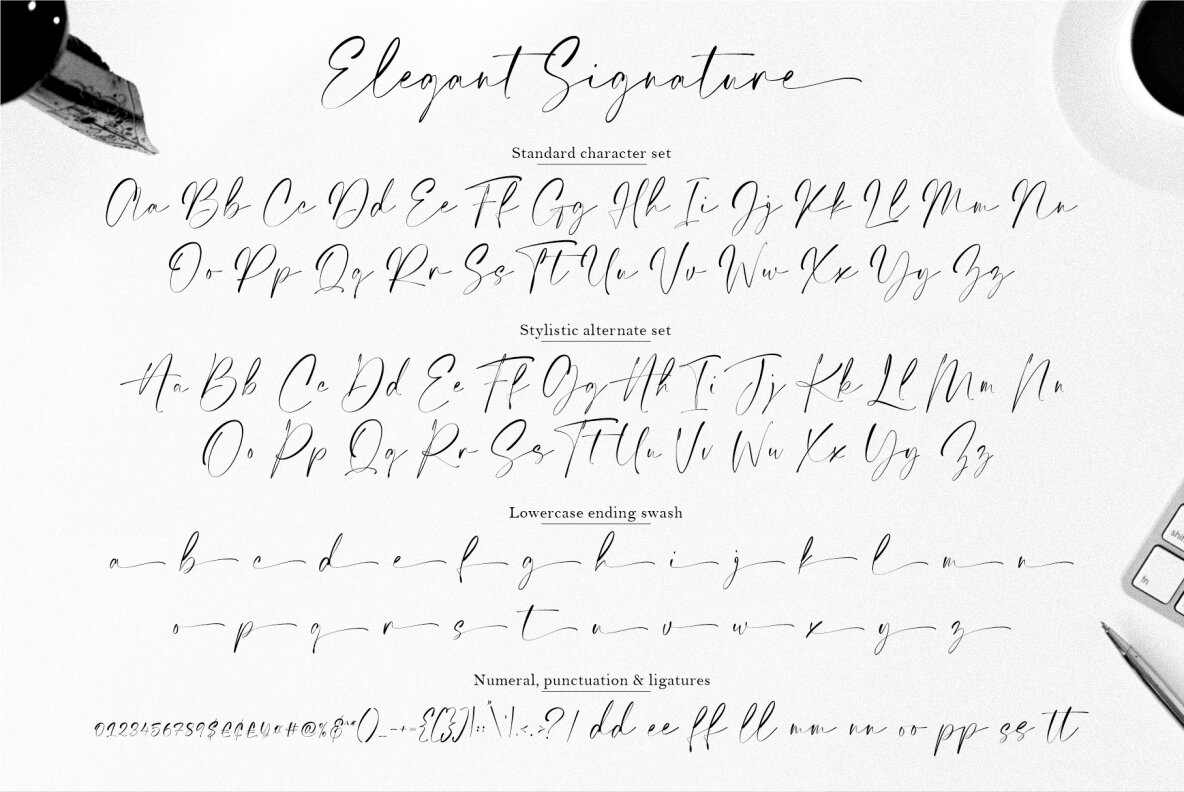 Elegant Signature
Standard character set
Aa Bb Cc Dd Ee Ff Gg Hh Ii Jj Kk Ll Mm Nn
Oo Pp Qq Rr Ss Tt Uu Vv Ww Xx Yy Zz
Stylistic alternate set
Aa Bb Cc Dd Ee Ff Gg Hh Ii Jj Kk Ll Mm Nn
Oo Pp Qq Rr Ss Tt Uu Vv Ww Xx Yy Zz
Lowercase ending swash
a b c d e f g h i j k l m n
o p q r s t u v w x y z
shift
fn
Numeral, punctuation & ligatures
0123456789 dd ee ff ll mm nn oo pp ss tt